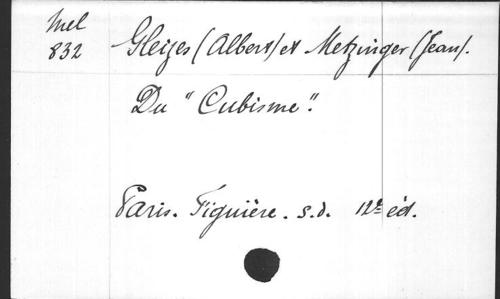 Mel
832
Gleizes (Albert) et Metzinger (Jean).
Du "Cubisme".
Paris. Figuière. s.d. 12e éd.